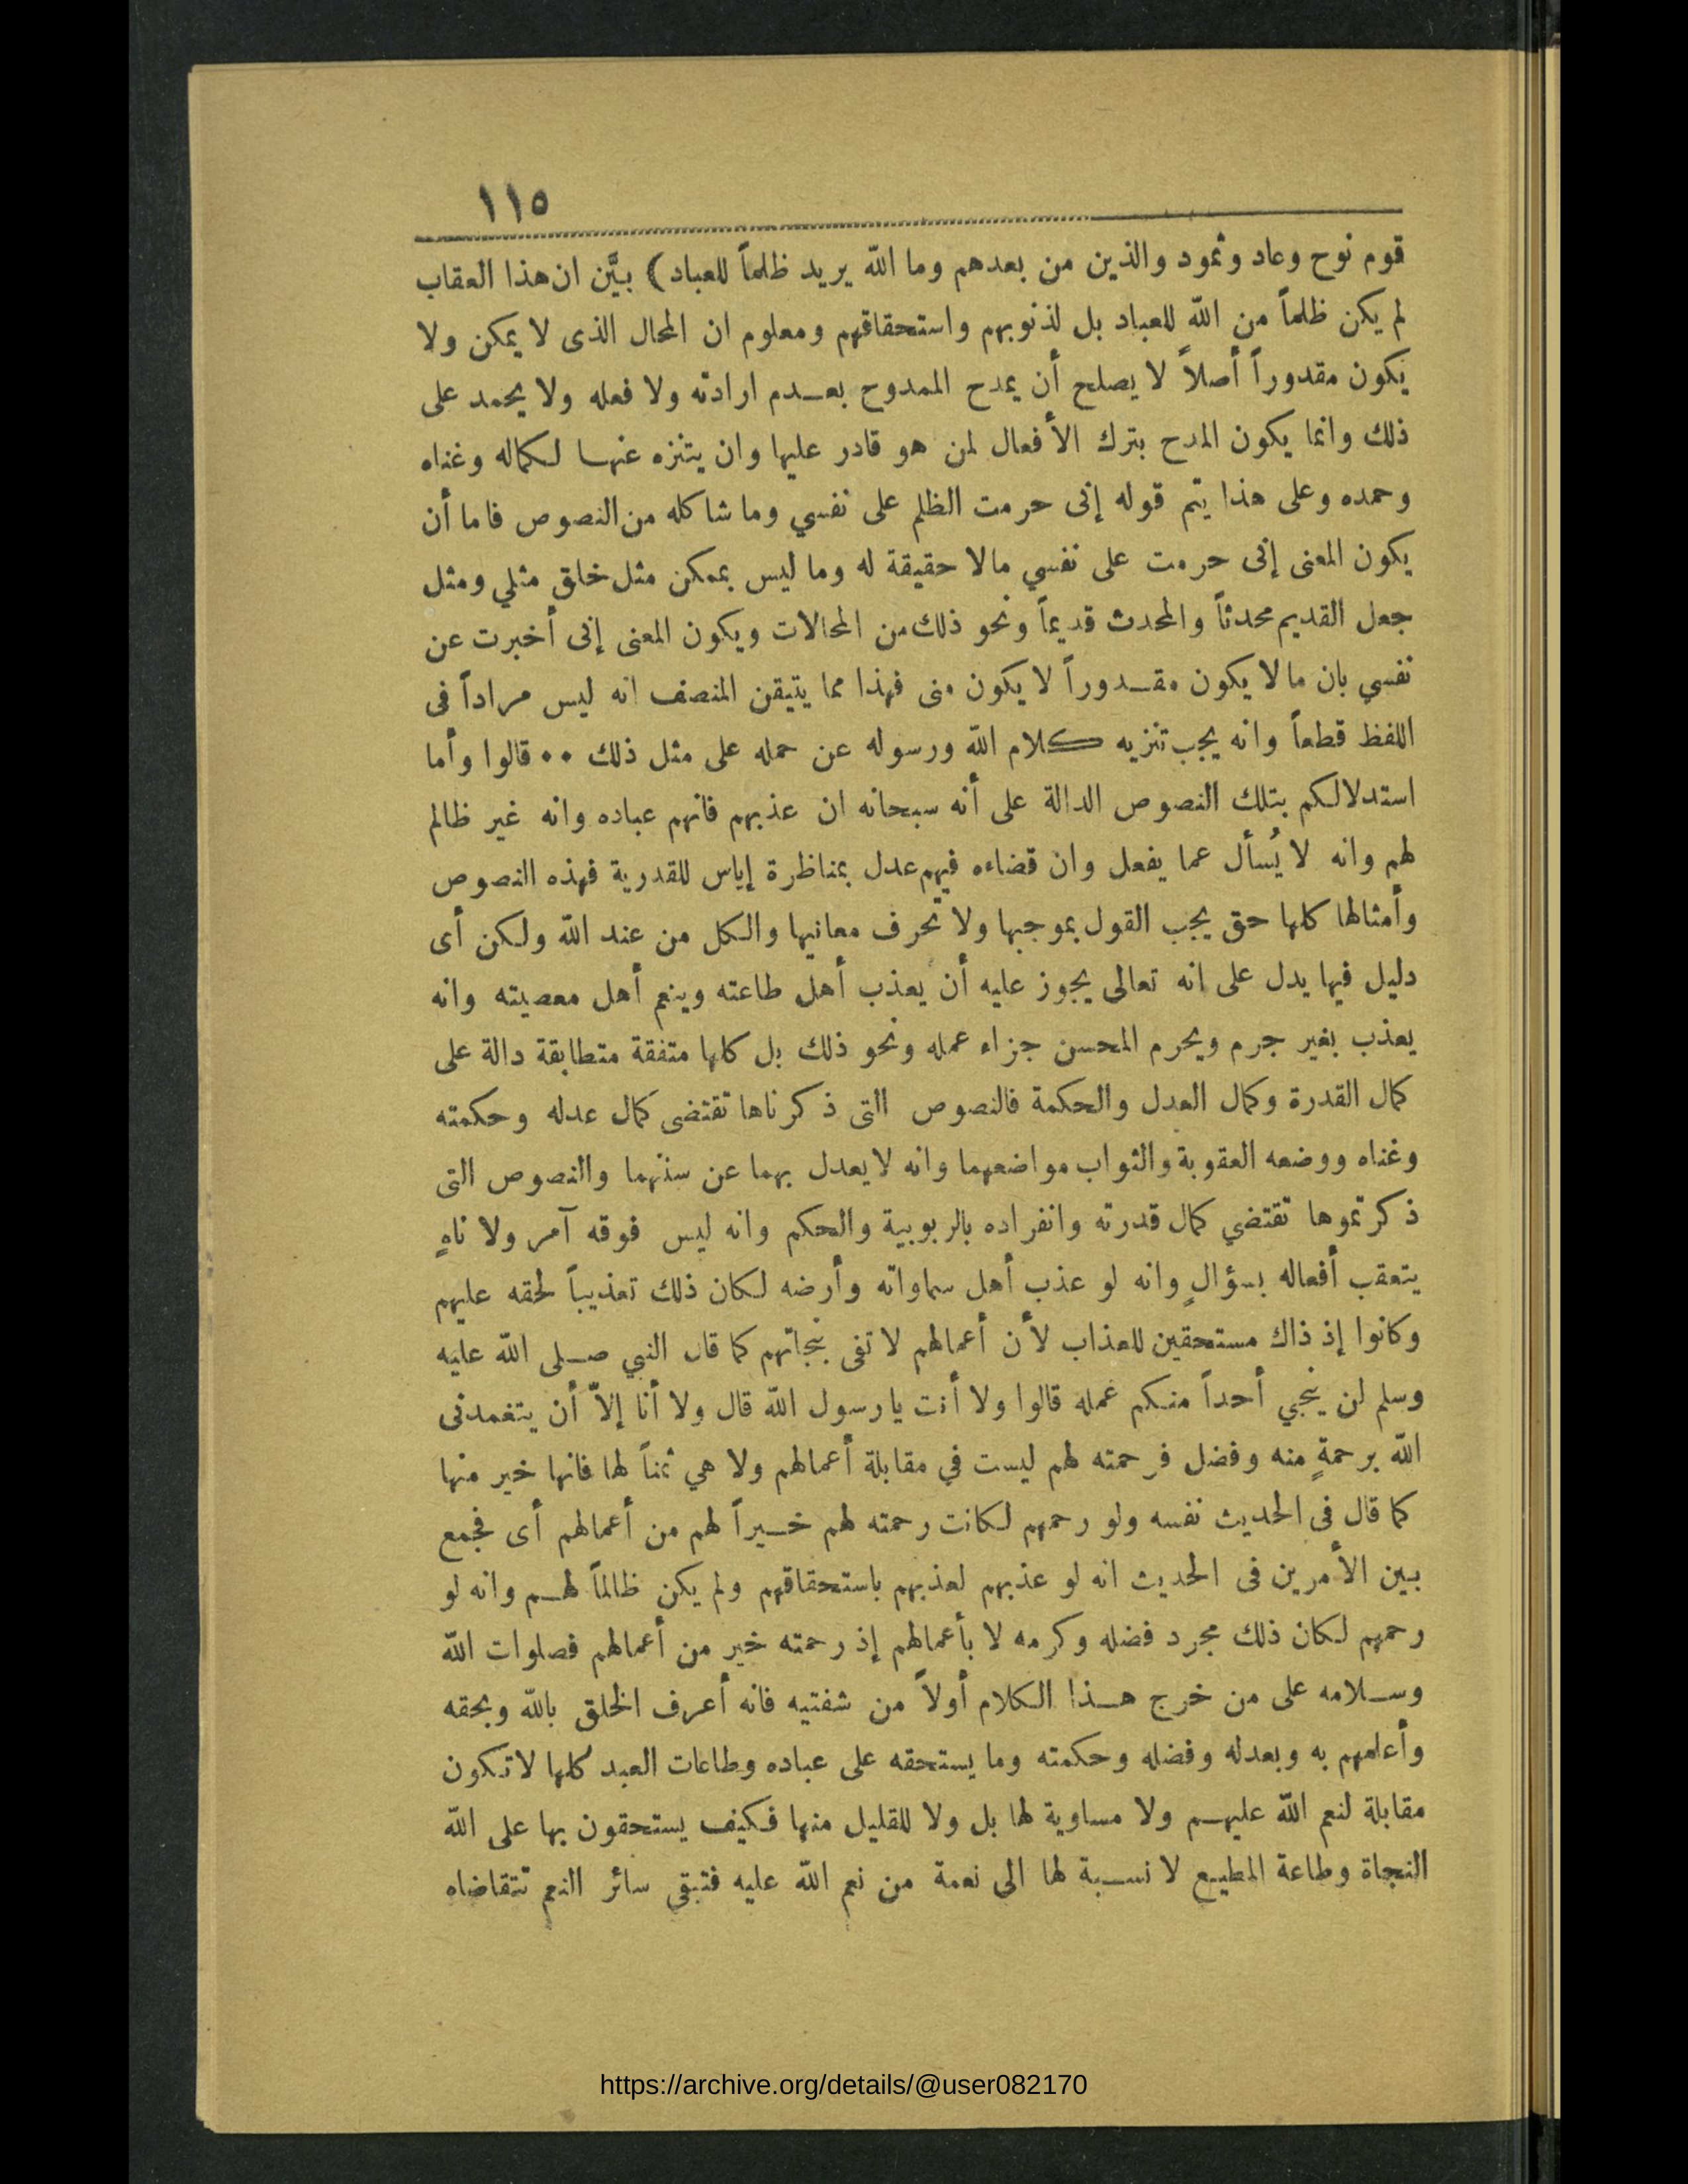 ١١٥
قوم نوح وعاد وثمود والذين من بعدهم وما الله يريد ظلماً للعباد) بيَّن ان هذا العقاب
لم يكن ظلماً من الله للعباد بل لذنوبهم واستحقاقهم ومعلوم ان المحال الذى لا يمكن ولا
يكون مقدوراً أصلاً لا يصلح أن يمدح الممدوح بعدم ارادته ولا فعله ولا يحمد على
ذلك وانما يكون المدح بترك الأفعال لمن هو قادر عليها وان يتنزه عنها لكماله وغناه
وحمده وعلى هذا يتم قوله إنى حرمت الظلم على نفسي وما شاكله من النصوص فاما أن
يكون المعنى إنى حرمت على نفسي مالا حقيقة له وما ليس بممكن مثل خلق مثلي ومثل
جعل القديم محدثاً والمحدث قديماً ونحو ذلك من المحالات ويكون المعنى إنى أخبرت عن
نفسي بان مالا يكون مقدوراً لا يكون منى فهذا مما يتيقن المنصف انه ليس مراداً فى
اللفظ قطعاً وانه يجب تنزيه كلام الله ورسوله عن حمله على مثل ذلك •• قالوا وأما
استدلالكم بتلك النصوص الدالة على أنه سبحانه ان عذبهم فانهم عباده وانه غير ظالم
لهم وانه لا يُسأل عما يفعل وان قضاءه فيهم عدل بمناظرة إياس للقدرية فهذه النصوص
وأمثالها كلها حق يجب القول بموجبها ولا تحرف معانيها والكل من عند الله ولكن أى
دليل فيها يدل على انه تعالى يجوز عليه أن يعذب أهل طاعته وينعم أهل معصيته وانه
يعذب بغير جرم ويحرم المحسن جزاء عمله ونحو ذلك بل كلها متفقة متطابقة دالة على
كمال القدرة وكمال العدل والحكمة فالنصوص التى ذكرناها تقتضى كمال عدله وحكمته
وغناه ووضعه العقوبة والثواب مواضعهما وانه لا يعدل بهما عن سننهما والنصوص التى
ذكرتموها تقتضي كمال قدرته وانفراده بالربوبية والحكم وانه ليس فوقه آمر ولا ناهٍ
يتعقب أفعاله بسؤالٍ وانه لو عذب أهل سماواته وأرضه لكان ذلك تعذيباً لحقه عليهم
وكانوا إذ ذاك مستحقين للعذاب لأن أعمالهم لا تفى بنجاتهم كما قال النبي صلى الله عليه
وسلم لن ينجي أحداً منكم عمله قالوا ولا أنت يا رسول الله قال ولا أنا إلاّ أن يتغمدنى
الله برحمةٍ منه وفضل فرحمته لهم ليست في مقابلة أعمالهم ولا هي ثمناً لها فانها خير منها
كما قال فى الحديث نفسه ولو رحمهم لكانت رحمته لهم خيراً لهم من أعمالهم أى فجمع
بين الأمرين فى الحديث انه لو عذبهم لعذبهم باستحقاقهم ولم يكن ظالماً لهم وانه لو
رحمهم لكان ذلك مجرد فضله وكرمه لا بأعمالهم إذ رحمته خير من أعمالهم فصلوات الله
وسلامه على من خرج هذا الكلام أولاً من شفتيه فانه أعرف الخلق بالله وبحقه
وأعلمهم به وبعدله وفضله وحكمته وما يستحقه على عباده وطاعات العبد كلها لا تكون
مقابلة لنعم الله عليهم ولا مساوية لها بل ولا للقليل منها فكيف يستحقون بها على الله
النجاة وطاعة المطيع لا نسبة لها الى نعمة من نعم الله عليه فتبقى سائر النعم تتقاضاه
https://archive.org/details/@user082170